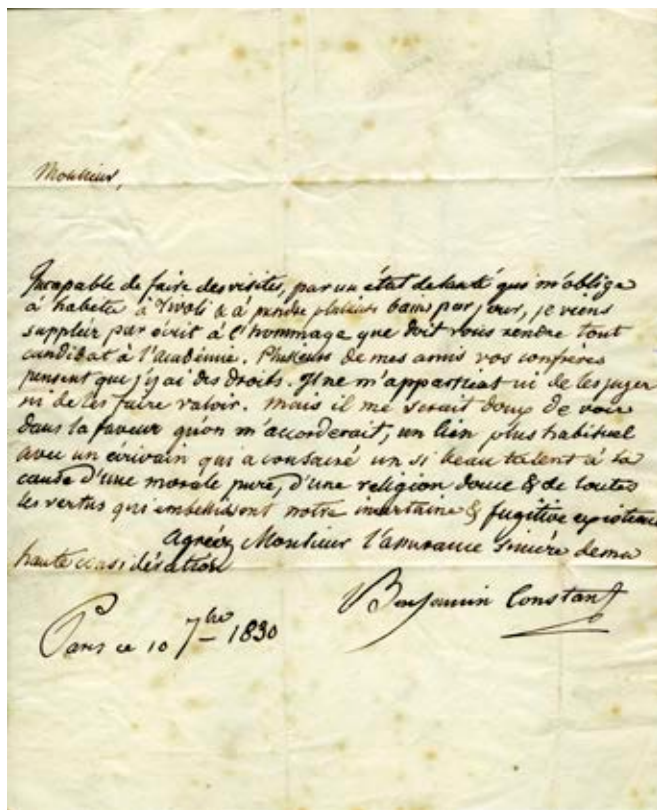 Monsieur,
Incapable de faire des visites, par un état de santé qui m'oblige
à habiter à Tivoli & à prendre plusieurs bains par jour, je viens
suppléer par écrit à l'hommage que doit vous rendre tout
candidat à l'Académie. Plusieurs de mes amis vos confrères
pensent que j'y ai des droits. Il ne m'appartient ni de les juger
ni de les faire valoir. Mais il me serait doux de voir
dans la faveur qu'on m'accorderait, un lien plus habituel
avec un écrivain qui a consacré un si beau talent à la
cause d'une morale pure, d'une religion douce & de toutes
les vertus qui embellissent notre incertaine & fugitive existence
Agréez Monsieur l'assurance sincère de ma
haute considération
Benjamin Constant
Paris ce 10 7bre 1830